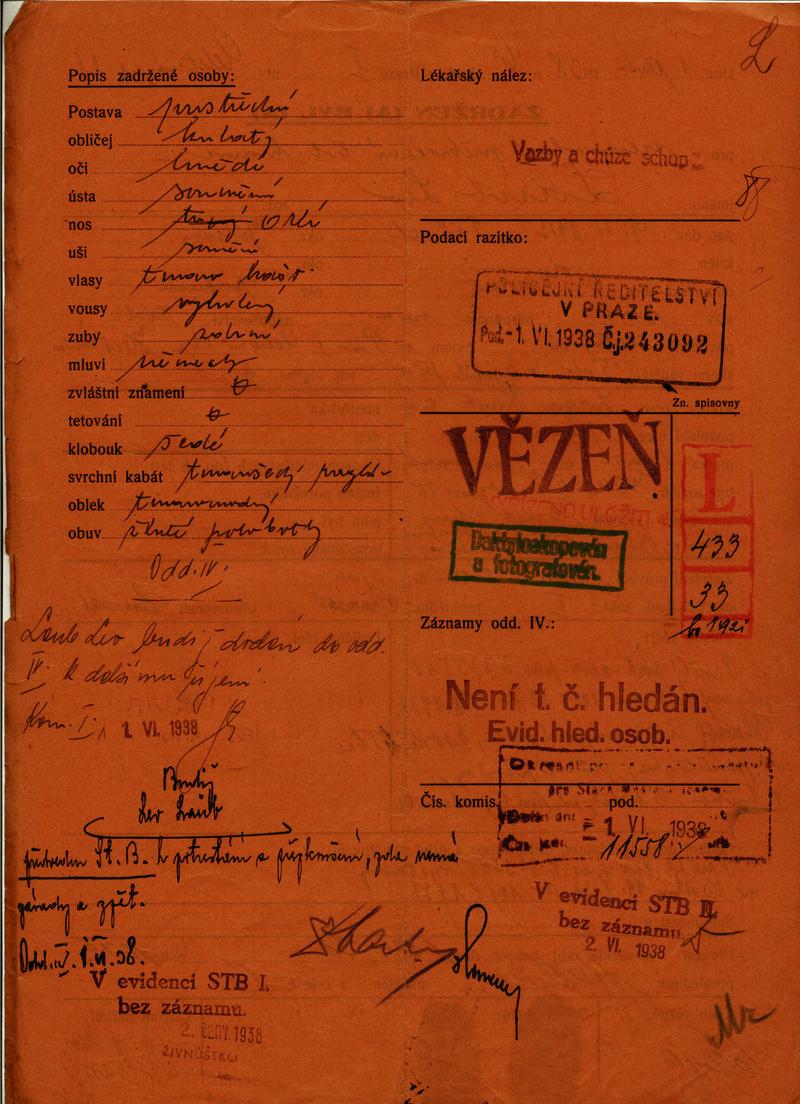 Popis zadržené osoby:
Postava prostřední
obličej kulatý
oči hnědé
ústa souměrná
nos orlí
uši
vlasy tmavo
vousy vyholený
zuby zdravé
mluví německy
zvláštní znamení
tetování
klobouk šedé
svrchní kabát tmavošedý
oblek tmavomodrý
obuv žluté polobotky
Odd. IV.
Laub Lev budiž dodán do odd.
IV. k dalšímu řízení.
Kom. I. 1. VI. 1938
Budiž
Lev Laub
předveden St. B. k potrestání a přezkoušení, zda nemá
závady a zpět.
Odd. IV. 1. VI. 38.
V evidenci STB I.
bez záznamu.
2. ČERV. 1938
ŽIVNŮSTKO
L
Lékařský nález:
Vazby a chůze schop.
Podací razítko:
POLICEJNÍ ŘEDITELSTVÍ
V PRAZE.
Pod. -1. VI. 1938 Č.j. 243092
Zn. spisovny
VĚZEŇ
L
433
33
Daktyloskopován
a fotografován.
Záznamy odd. IV.:
Není t. č. hledán.
Evid. hled. osob.
Okresní
pro Staré
Čís. komis. pod.
Došlo dne - 1. VI. 1938
Čís. jed. 11558
V evidenci STB II.
bez záznamu.
2. VI. 1938